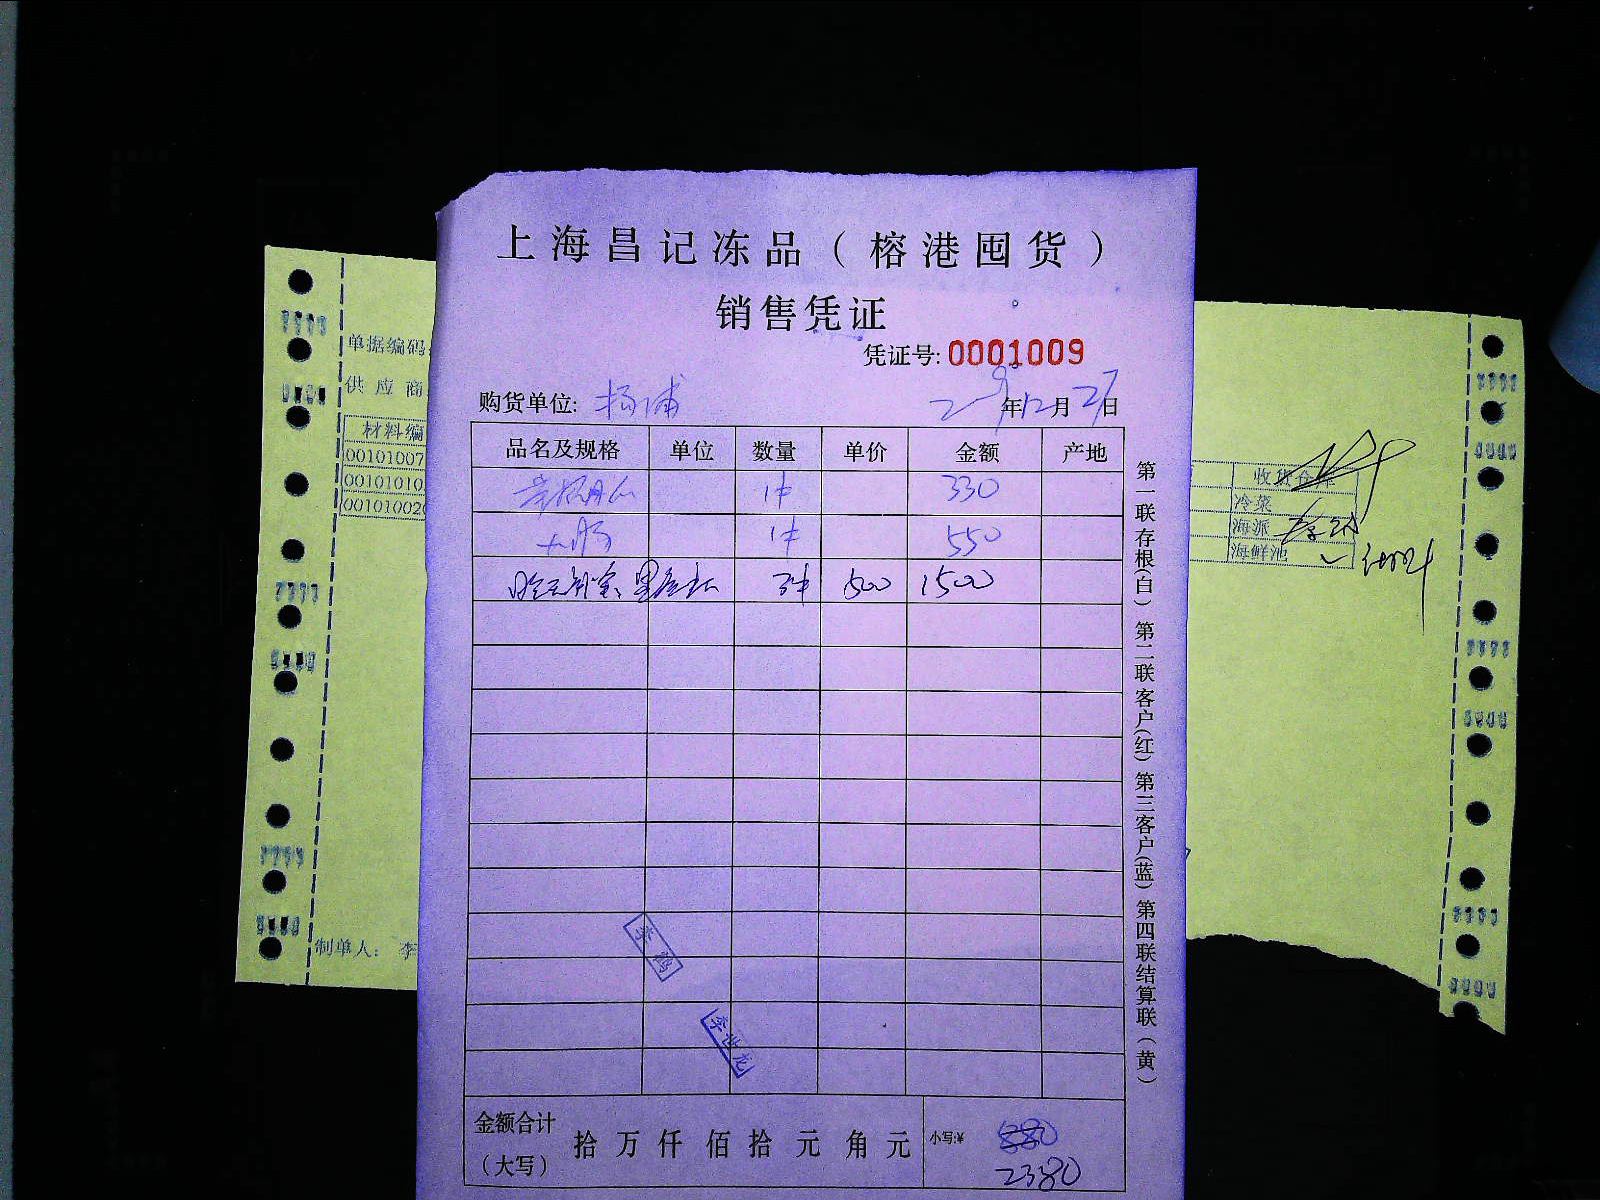 上海昌记冻品（榕港囤货）
销售凭证
凭证号: 0001009
购货单位: 杨浦 年12月27日
品名及规格 单位 数量 单价 金额 产地
1件 330
大肠 1件 550
3件 500 1500
金额合计（大写） 拾万仟佰拾元角元 小写:¥ 880
2380
第一联存根(白) 第二联客户(红) 第三客户(蓝) 第四联结算联(黄)
李鸿
李世龙
单据编码:
供应商
材料编
00101007
00101010
001010020
制单人: 李
收货仓库
冷菜
海派
海鲜池